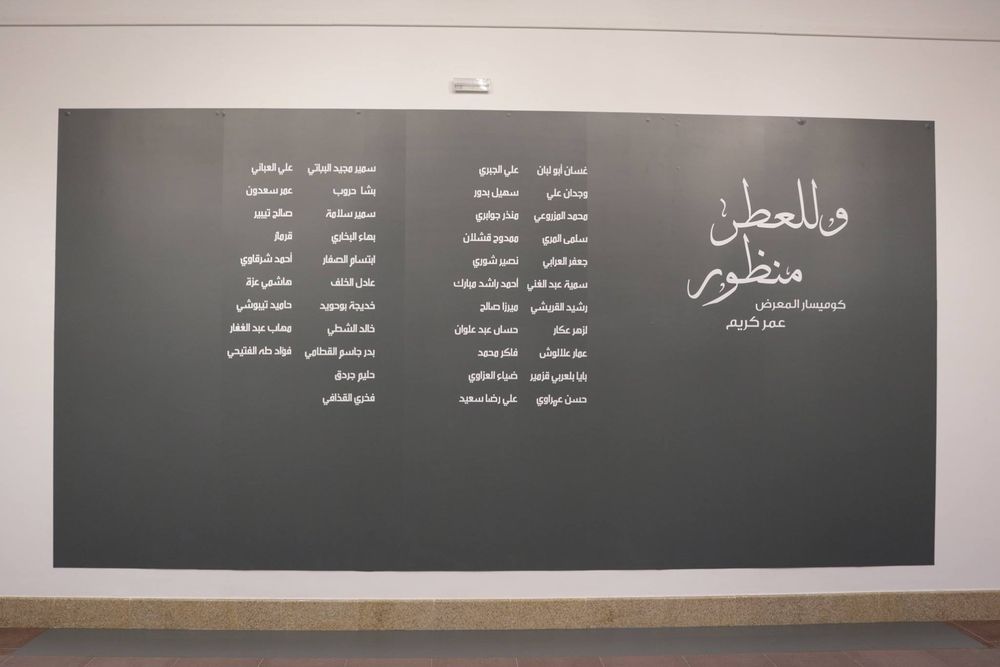 وللعطر
منظور
كوميسار المعرض
عمر كريم
غسان أبو لبان
وجدان علي
محمد المزروعي
سلمى المري
جعفر العرابي
سمية عبد الغني
رشيد القريشي
ازهر عكار
عمار علالوش
بايا بلعربي قزمير
حسن عبراوي
علي الجبري
سهيل بدور
منذر جوابري
ممدوح قشلان
نصير شوري
احمد راشد مبارك
ميرزا صالح
حسان عبد علوان
فاكر محمد
ضياء العزاوي
علي رضا سعيد
سمير مجيد البياتي
بشا حروب
سمير سلامة
بهاء البخاري
ابتسام الصفار
عادل الخلف
خديجة بوحويد
خالد الشطي
بدر جاسم القطامي
حليم جردق
فخري القذافي
علي العباني
عمر سعدون
صالح تيبير
قرماز
أحمد شرقاوي
هاشمي عزة
حاميد تيبوشي
مهاب عبد الغفار
فؤاد طه الفتيحي